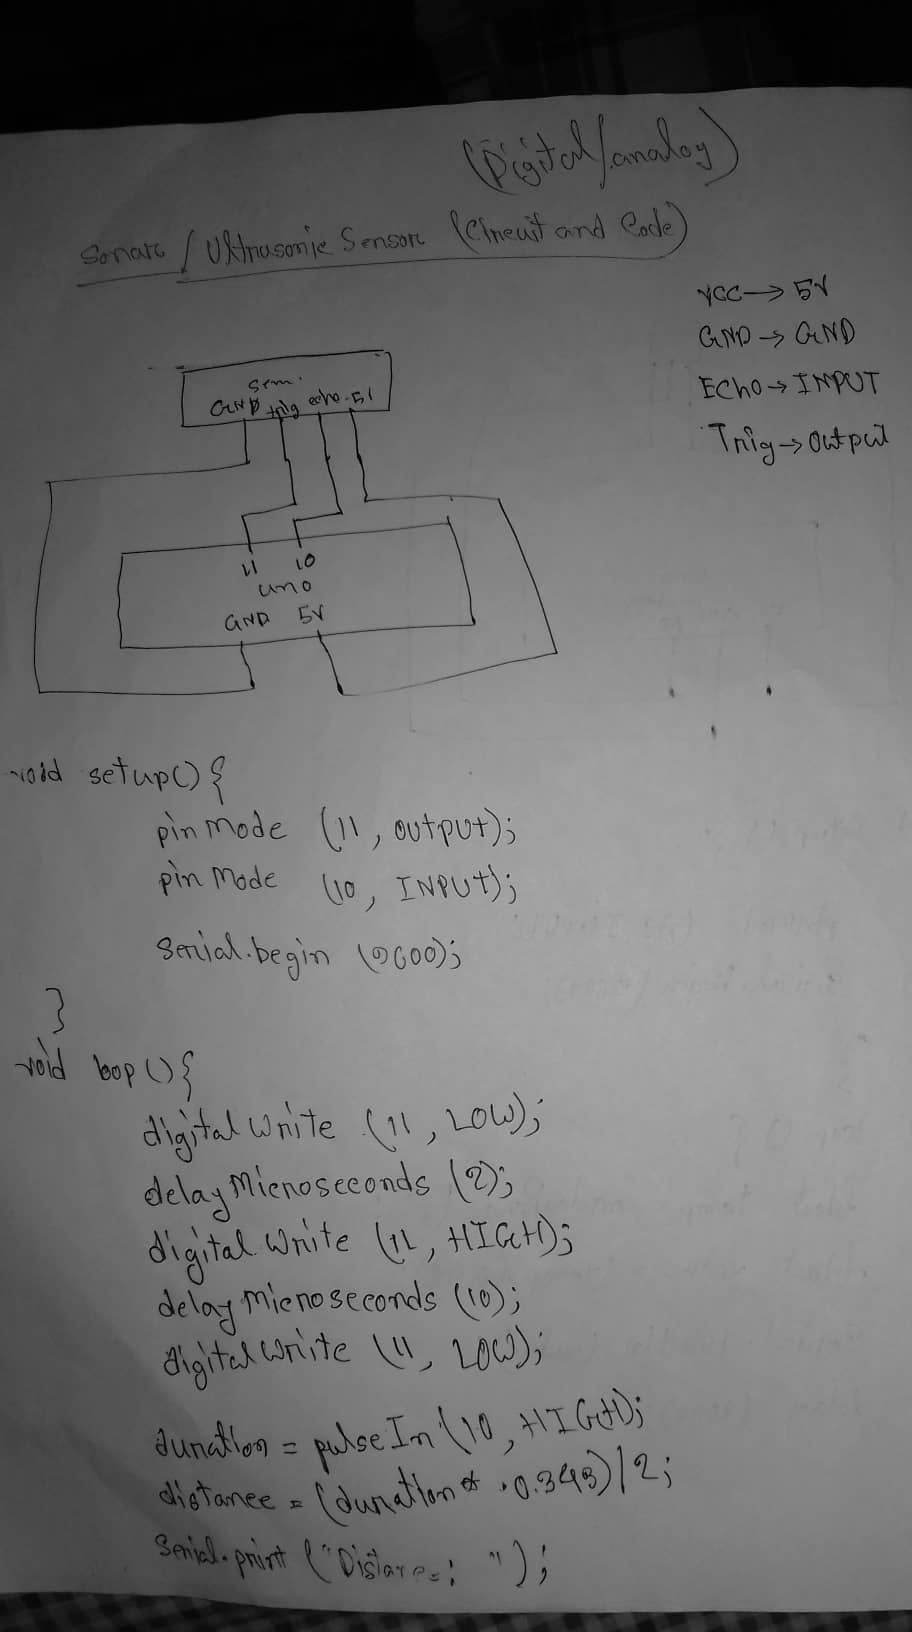 (Digital/analog)
Sonar / Ultrasonic Sensor (Circuit and Code)
VCC → 5V
GND → GND
Echo → INPUT
Trig → Output
GND trig echo 5V
11 10
uno
GND 5V
void setup() {
pin Mode (11, OUTPUT);
pin Mode (10, INPUT);
Serial.begin (9600);
}
void loop () {
digital Write (11, LOW);
delay Microseconds (2);
digital Write (11, HIGH);
delay Microseconds (10);
digital Write (11, LOW);
duration = pulseIn (10, HIGH);
distance = (duration * .0.343)/2;
Serial.print ("Distance: ");